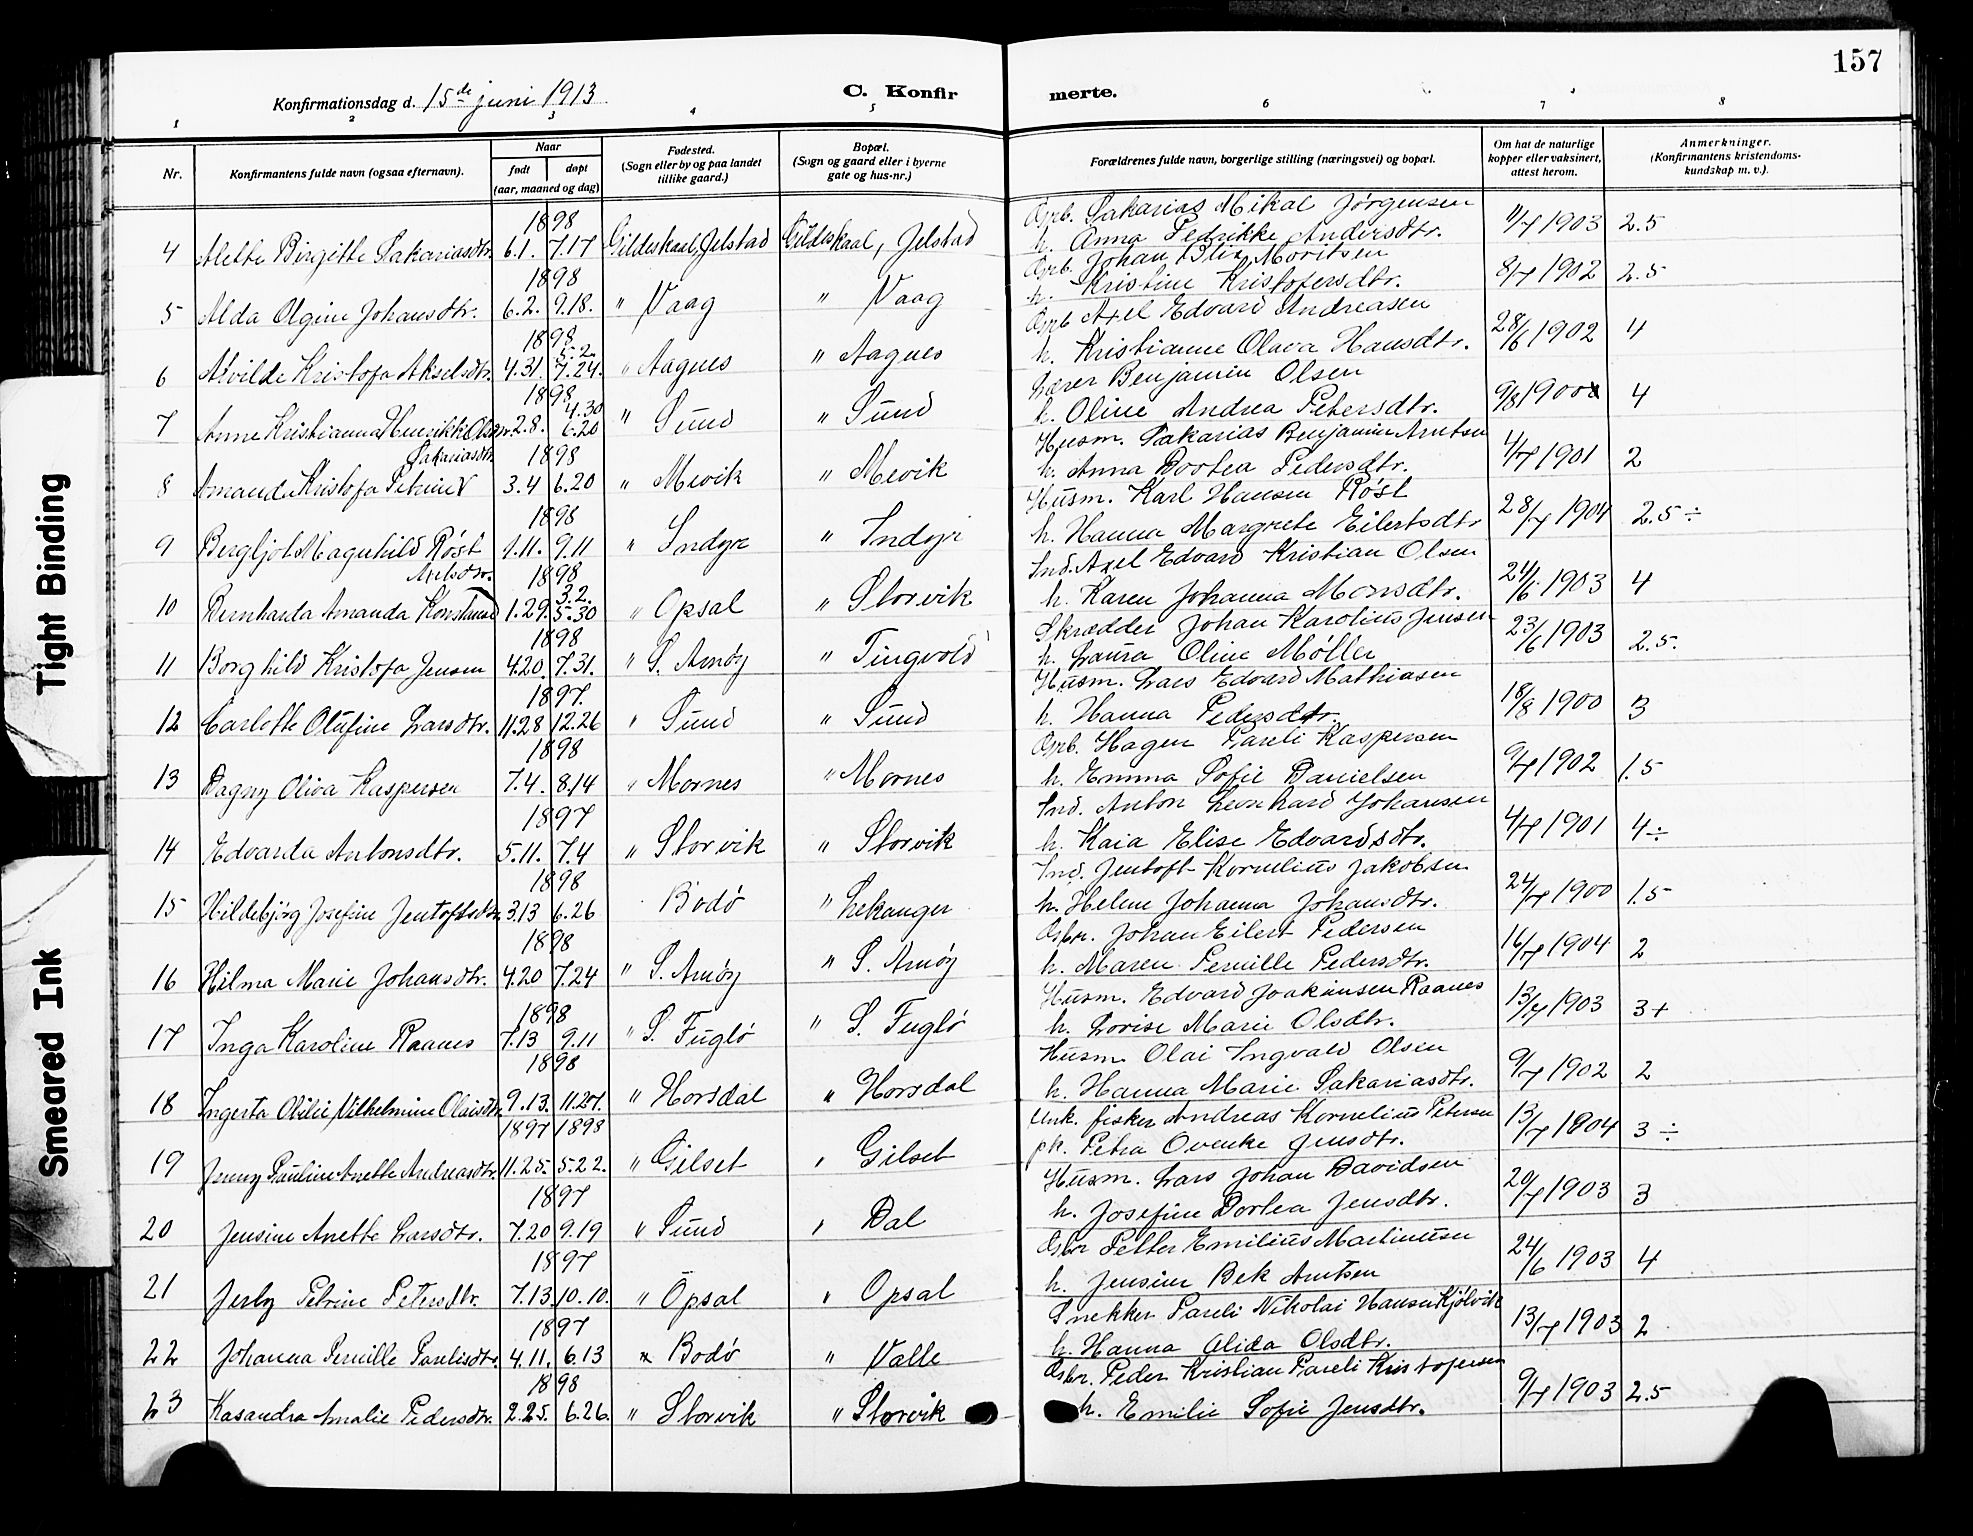 157
Konfirmationsdag d. 15de juni 1913.
C. Konfir merte.
1 2 3 4 5 6 7 8
Nr. Konfirmantens fulde navn (ogsaa efternavn). Naar født døpt (aar, maaned og dag) Fødested. (Sogn eller by og paa landet tillike gaard.) Bopæl. (Sogn og gaard eller i byerne gate og hus-nr.) Forældrenes fulde navn, borgerlige stilling (næringsvei) og bopæl. Om hat de naturlige kopper eller vaksinert, attest herom. Anmerkninger. (Konfirmantens kristendoms-kundskap m. v.).
1898 Gprb. Sakarias Mikal Jørgensen
4 Alette Birgitte Sakariasdtr. 6.1. 7.17 Gildeskaal, Jelstad Gildeskaal, Jelstad h. Anna Fedrikke Andersdtr. 11/7 1903 2.5
1898 Gprb. Johan Blix Moritsen
5 Alda Olgine Johansdtr. 6.2. 9.18. " Vaag " Vaag h. Kristine Kristofersdtr. 8/7 1902 2.5
1898 Gprb Axel Edvard Andreasen
5.2.
6 Alvilde Kristofa Akselsdtr. 4.31. 7.24. " Aagnes " Aagnes h. Kristianne Olava Hansdtr. 28/6 1902 4
1898 Lærer Benjamin Olsen
4.30
7 Anne Kristianna Henrikke Olsen. 2.8. 6.20 " Sund " Sund h. Oline Andrea Petersdtr. 9/8 1900 4
Sakariasdtr. 1898 Husm. Sakarias Benjamin Arntsen
8 Amanda Kristofa Petrine 3.4 6.20 " Mevik " Mevik h. Anna Dortea Pedersdtr. 4/7 1901 2
1898 Husm. Karl Hansen Røst
9 Bergljot Magnhild Røst 1.11. 9.11 " Indyr " Indyr h. Hanna Margrete Eilertsdtr 28/7 1904 2.5 ÷
Axelsdtr. 1898 Ind. Axel Edvard Kristian Olsen
3.2.
10 Bernharda Amanda Konstanse 1.29. 5.30 " Opsal " Storvik h. Karen Johanna Monsdtr. 24/6 1903 4
1898 Skrædder Johan Karolius Jensen
11 Borghild Kristofa Jensen 4.20. 7.31. " S. Arnøy " Tingvold h. Laura Oline Møller 23/6 1903 2.5.
1897. Husm. Lars Edvard Mathiasen
12 Carlotte Olufine Larsdtr. 11.28 12.26 " Sund " Sund h. Hanna Pedersdtr. 18/8 1900 3
1898 Gprb. Hagen Pareli Kaspersen
13 Dagny Oliva Kaspersen 7.4. 8.14 " Mornes " Mornes h. Emma Sofie Danielsen 9/7 1902 1.5
1897 Ind. Anton Leonhard Johansen
14 Edvarda Antonsdtr. 5.11. 7.4 " Storvik " Storvik h. Kaia Elise Edvardsdtr. 4/7 1901 4÷
1898 Ind. Jentoft Kornelius Jakobsen
15 Hildebjørg Josefine Jentoftsdtr. 3.13 6.26 Bodø " Lekanger h. Helene Johanna Johansdtr. 24/7 1900 1.5
1898 Gsbr. Johan Eilert Pedersen
16 Hilma Marie Johansdtr. 4.20 7.24 " S. Arnøy " S. Arnøy h. Maren Pernille Pedersdtr. 16/7 1904 2
1898 Husm. Edvard Joakimsen Raanes
17 Inga Karoline Raanes 7.13 9.11 " S. Fuglø " S. Fuglø h. Lovise Marie Olsdtr. 13/7 1903 3+
1898 Husm. Olai Ingvald Olsen
18 Ingerta Otilie Vilhelmine Olaisdtr. 9.13. 11.27. " Horsdal " Horsdal h. Hanna Marie Sakariasdtr. 9/7 1902 2
1897 1898 Unk. fisker Andreas Kornelius Petersen
19 Jenny Pauline Anette Andreasdtr. 11.25. 5.22. " Gilset " Gilset pk. Petra Ovenke Jensdtr. 13/7 1904 3 ÷
1897 Husm. Lars Johan Davidsen
20 Jensine Anette Larsdtr. 7.20 9.19 " Sund " Dal h. Josefine Dortea Jensdtr. 20/7 1903 3
1897 Gsbr Petter Emilius Martinusen
21 Jerby Petrine Petersdtr. 7.13. 10.10. " Opsal " Opsal h. Jensine Bek Arntsen 24/6 1903 4
1897 Snekker Pareli Nikolai Hansen Kjølvik
22 Johanna Pernille Parelisdtr. 4.11. 6.13 Bodø " Valle h. Hanna Alida Olsdtr. 13/7 1903 2
1898 Gsbr. Peder Kristian Pareli Kristofersen
23 Kasandra Amalie Pedersdtr. 2.25. 6.26. " Storvik " Storvik h. Emilie Sofie Jensdtr. 9/7 1903 2.5
Tight Binding
Smeared Ink